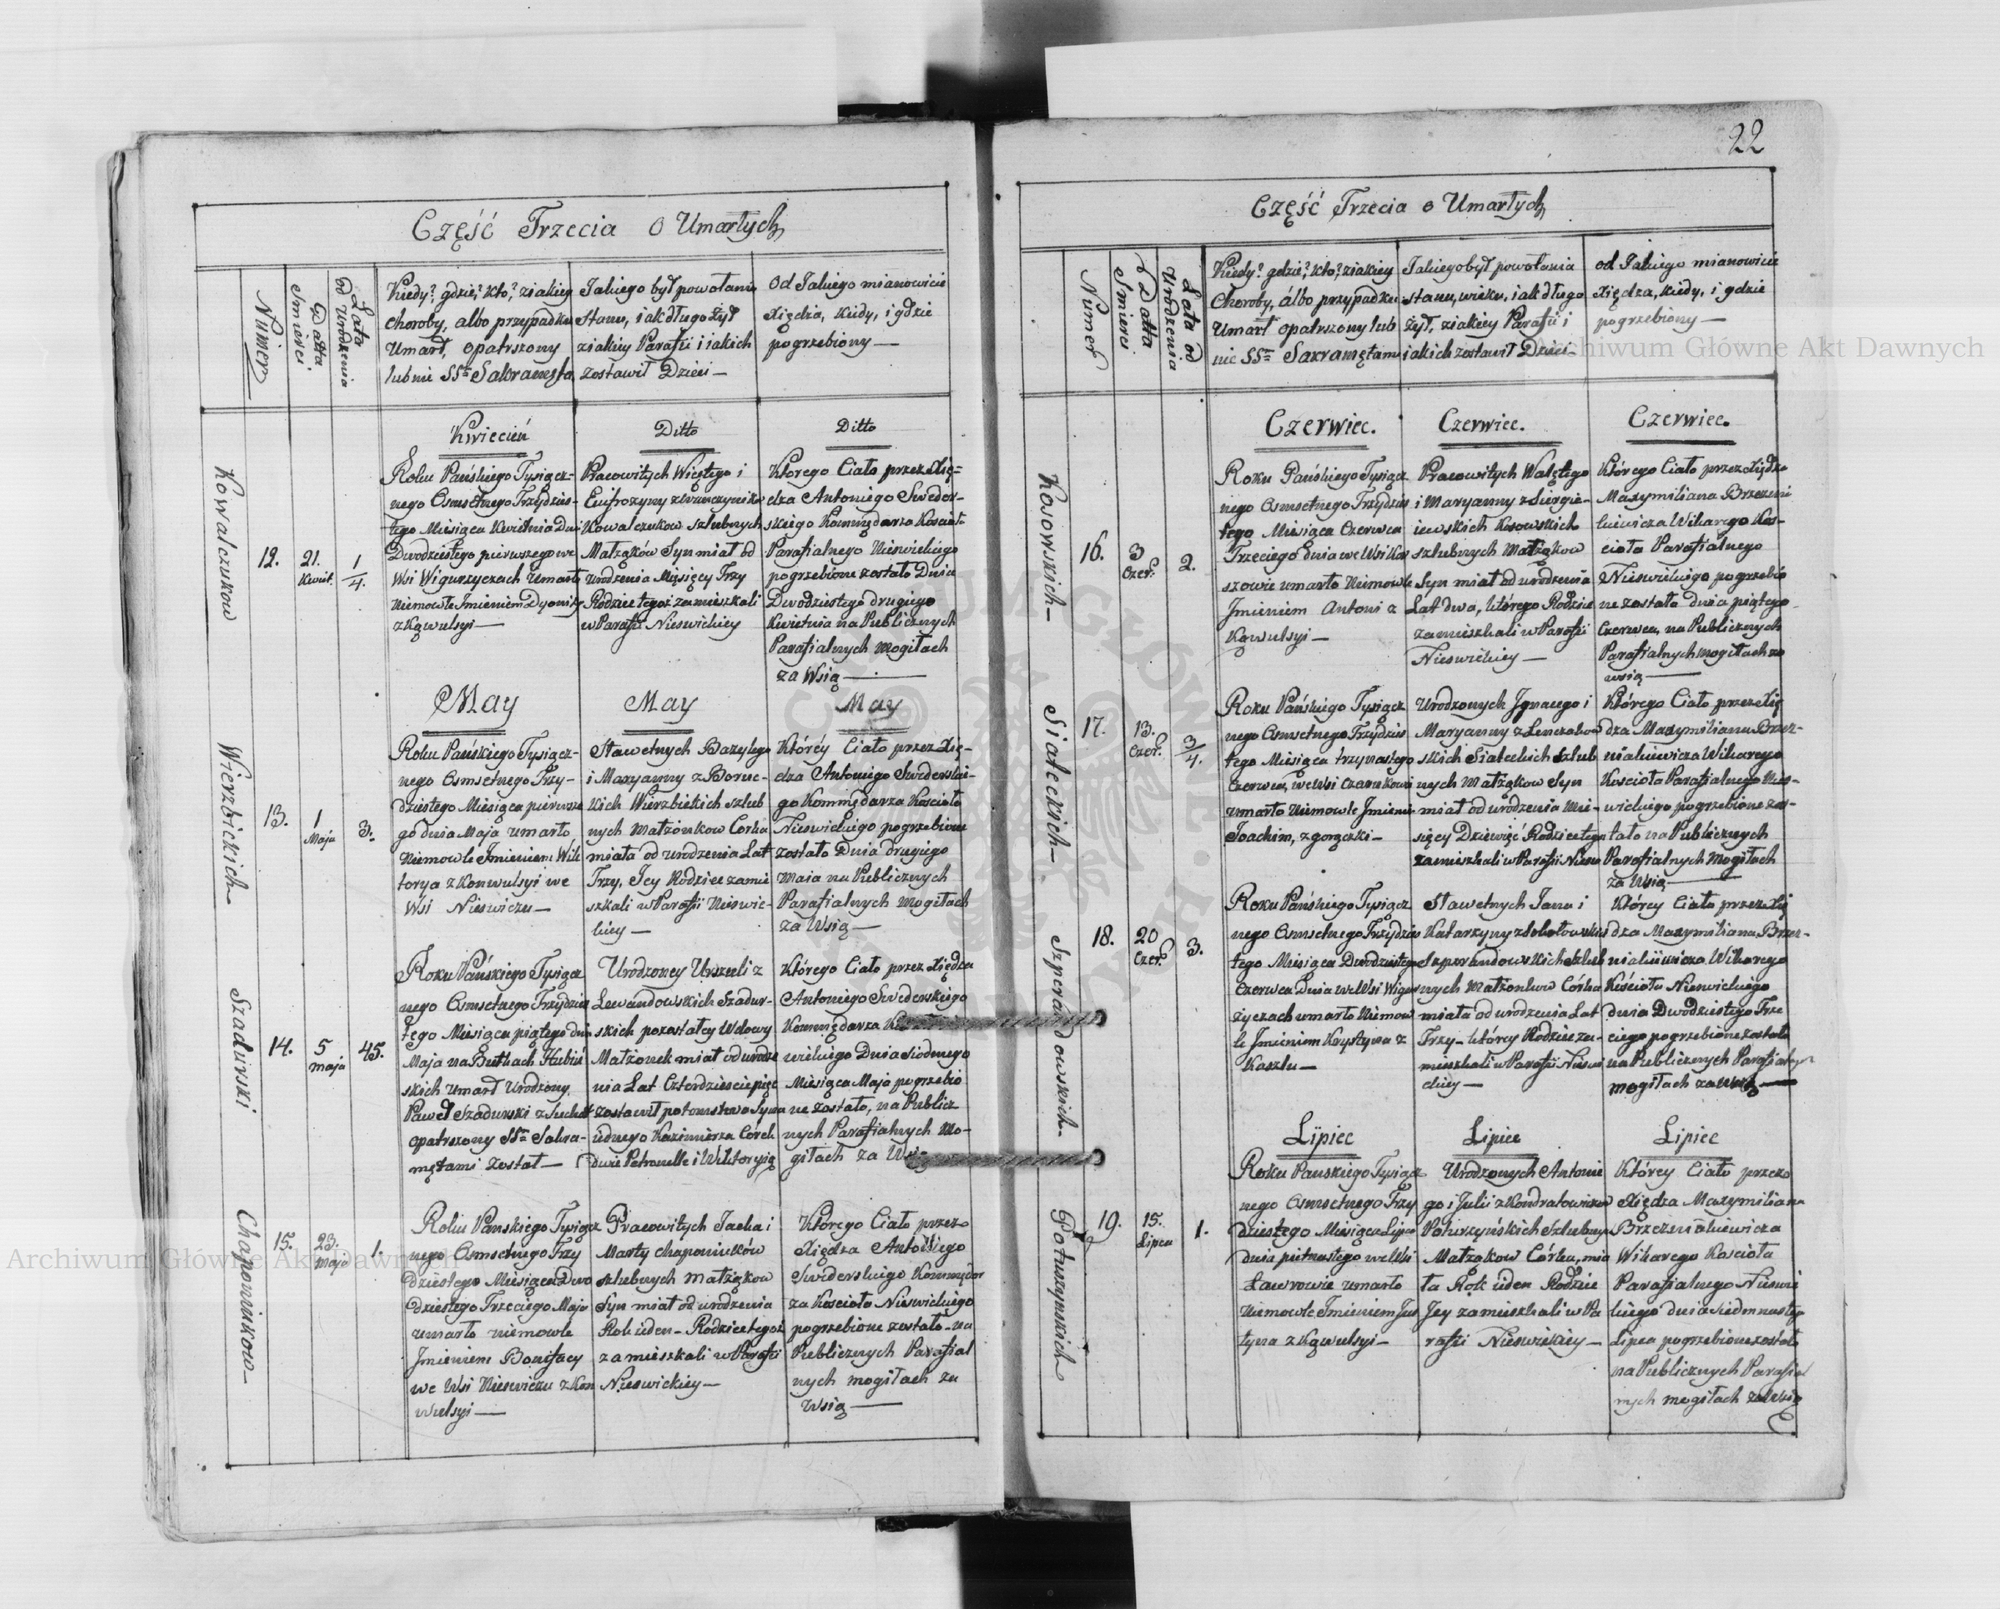 22
Część Trzecia o Umarłych
Numer
Datta
Smierci
Lata
od Urodzenia
Kiedy? gdzie? kto? ziakiey
choroby, albo przypadku
Umarł, opatrzony
lub nie SS
Jakiego był powołania
Stanu, i iak długo żył
ziakiey Parafii i iakich
zostawił Dzieci —
Od Jakiego mianowicie
Xiędza, kiedy, i gdzie
pogrzebiony —
Kwiecień
Ditto
Ditto
Kowalczukow
12.
21.
Kwiet.
1/4.
Roku Pańskiego Tysiącz-
nego Osmsetnego Trzydzies-
tego Miesiąca Kwietnia Dnia
Dwodziestego pierwszego we
Wsi Wigurzyczach Umarło
Niemowle Imieniem Dyonizy
z Kąwulsyi —
Pracowitych Więtego i
Eufrozyny
Kowalczukow szlubnych
Małząków Syn miał od
urodzenia Miesięcy Trzy
Rodzice tegoż zamieszkali
w Parafii Nieswickiey
Którego Ciało przez Xię-
dza Antoniego Swider-
skiego Kommędarza Kościoła
Parafialnego Nieswickiego
pogrzebione zostało Dnia
Dwodziestego drugiego
Kwietnia na Publicznych
Parafialnych mogiłach
za Wsią —
May
May
May
Wierzbickich
13.
1
Maja
3.
Roku Pańskiego Tysiącz-
nego Osmsetnego Trzy-
dziestego Miesiąca pierwsze
go dnia Maja umarło
Niemowle Imieniem Wik
torya z Konwulsyi we
Wsi Nieswiczu —
Sławetnych Bazylego
i Maryanny z Boruc-
kich Wierzbickich szlub
nych Małżonkow Corka
miała od urodzenia Lat
Trzy, Jey Rodzice zamie
szkali w Parafii Nieswic-
kiey —
Którey Ciało przez Xię-
dza Antoniego Swiderskie-
go Kommędarza Kościoła
Nieswickiego pogrzebione
zostało Dnia drugiego
Maia na Publicznych
Parafialnych Mogiłach
za Wsią —
Szadurski
14.
5
maja
45.
Roku Pańskiego Tysiącz
nego Osmsetnego Trzydzies
tego Miesiąca piątego dnia
Maja na Budkach Hubiń
skich Umarł Urodzony
Paweł Szadurski z Suchot
opatrzony SS Sakra-
mętami został —
Urodzoney Urszuli z
Lewandowskich Szadur-
skich pozostałey Wdowy
Małżonek miał od urodze
nia Lat Czterdziescie pięć
zostawił potomstwo Syna
iednego Kazimierza Córek
dwie Petronelle i Wiktoryią
Którego Ciało przez Xiędza
Antoniego Swiderskiego
Kommędarza
wickiego Dnia Siódmego
Miesiąca Maja pogrzebio
ne zostało, na Publicz
nych Parafialnych Mo-
giłach za Wsią
Chaponiukow
15.
23.
maja
1.
Roku Panskiego Tysiącz
nego Osmsetnego Trzy
dziestego Miesiąca Dwo
dziestego Trzeciego Maja
umarło niemowle
Imieniem Bonifacy
we Wsi Nieswiczu z Kon
wulsyi —
Pracowitych Jacka i
Marty Chaponiuków
szlubnych Małżąkow
Syn miał od urodzenia
Rok ieden — Rodzice tegoż
zamieszkali w Parafii
Nieswickiey —
Którego Ciało przez
Xiędza Antoniego
Swiderskiego Kommędar
za Kościoła Nieswickiego
pogrzebione zostało na
Publicznych Parafial
nych mogiłach za
Wsią —
Część Trzecia o Umarłych
Numer
Datta
Smierci
Lata od
Urodzenia
Kiedy? gdzie? kto? ziakiey
Choroby, albo przypadku
Umarł opatrzony lub
nie SS Sakramętami
Jakiego był powołania
stanu, wieku, i iak długo
żył, ziakiey Parafii i
iakich zostawił Dzieci —
od Jakiego mianowicie
Xiędza, kiedy, i gdzie
pogrzebiony —
Czerwiec.
Czerwiec.
Czerwiec.
Kosowskich —
16.
3
Czer.
2.
Roku Pańskiego Tysiącz
nego Osmsetnego Trzydzies
tego Miesiąca Czerwca
Trzeciego dnia we Wsi Kos
szowie umarło Niemowle
Imieniem Antoni z
Kąwulsyi —
Pracowitych Walętego
i Maryanny z Siergie-
iewskich Kosowskich
szlubnych Małżąkow
Syn miał od urodzenia
Lat dwa, którego Rodzice
zamieszkali w Parafii
Nieswickiey —
Którego Ciało przez Xiędza
Maxymiliana Brzezni
kiewicza Wikarego Koś-
cioła Parafialnego
Nieswickiego pogrzebio
ne zostało dnia piątego
Czerwca, na Publicznych
Parafialnych mogiłach za
wsią —
Siateckich —
17.
13.
Czer.
3/4.
Roku Pańskiego Tysiącz
nego Osmsetnego Trzydzies
tego Miesiąca trzynastego
Czerwca, we Wsi Czarnkowi
umarło Niemowle Imieniem
Joachim, z gorączki —
Urodzonych Ignacego i
Maryanny z
skich Siateckich Szlub
nych Małżąkow Syn
miał od urodzenia Mie-
sięcy Dziewięć Rodzice tego
zamieszkali w Parafii
Którego Ciało przez Xię
dza Maxymiliana Brzez-
niakiewicza Wikarego
Kościoła Parafialnego Nies-
wickiego pogrzebione zos-
tało na Publicznych
Parafialnych Mogiłach
za Wsią —
Szperandowskich —
18.
20
Czer.
3.
Roku Pańskiego Tysiącz
nego Osmsetnego Trzydzies
tego Miesiąca Dwodziestego
Czerwca Dnia we Wsi Wigur
zyczach umarło Niemow
le Imieniem Krystyna z
Kaszlu —
Sławetnych Jana i
Katarzyny z Sokołowskich
Szperandowskich Szlub
nych Małżonków Córka
miała od urodzenia Lat
Trzy — którey Rodzice za-
mieszkali w Parafii Nieswi
ckiey —
Którey Ciało przez Xię
dza Maxymiliana Brzez-
niakiewicza Wikarego
Kościoła Nieswickiego
dnia Dwodziestego Trze
ciego pogrzebione zostało
na Publicznych Parafialnych
mogiłach za Wsią —
Lipiec
Lipiec
Lipiec
Poturzynskich
19.
15.
Lipca
1.
Roku Panskiego Tysiącz
nego Osmsetnego Trzy
dziestego Miesiąca Lipca
dnia pietnastego we Wsi
Ławrowie umarło
Niemowle Imieniem Jus
tyna z Kąwulsyi —
Urodzonych Antonie
go i Julii z Kondratowiczow
Poturzyńskich Szlubnych
Małżąkow Córka, mia
ła Rok ieden Rodzice
Jey zamieszkali w Pa
rafii Nieswickiey —
Którey Ciało przez
Xiędza Maxymiliana
Brzezniakiewicza
Wikarego Kościoła
Parafialnego Nieswi
ckiego dnia siedmnastego
Lipca pogrzebione zostało
na Publicznych Parafial
nych mogiłach za Wsią
Archiwum Główne Akt Dawnych
Archiwum Główne Akt Dawnych